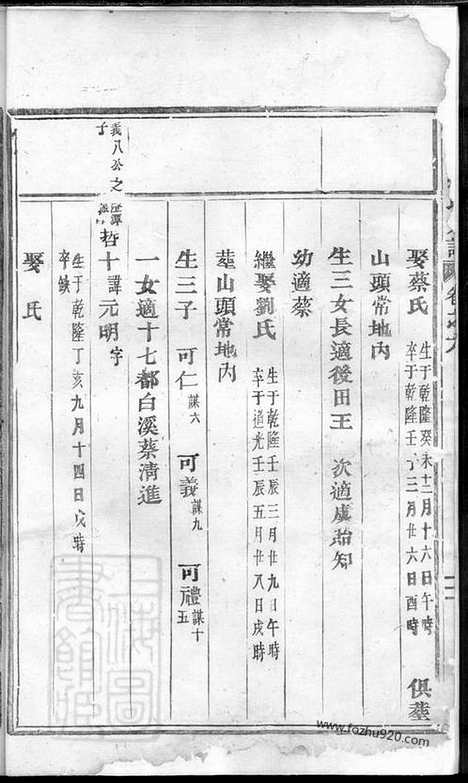 娶蔡氏 生于乾隆癸未十二月十六日午時 卒于乾隆壬子三月廿六日酉時 俱塟
山頭常地內
生三女長適後田王 次適盧詒知
幼適蔡
繼娶劉氏 生于乾隆壬辰三月廿九日午時 卒于道光壬辰五月廿八日戌時
塟山頭常地內
生三子 可仁謀六 可義謀九 可禮謀十五
一女適十七都白溪蔡清進
義八公之子
哲十諱元明字
生于乾隆丁亥九月十四日戊時 卒缺
娶 氏
上海圖書館藏
www.fozhu920.com